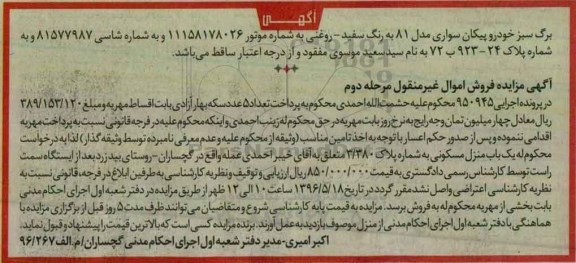 آگهی
برگ سبز خودرو پیکان سواری مدل ۸۱ به رنگ سفید - روغنی به شماره موتور ۱۱۱۵۸۱۷۸۰۲۶ و به شماره شاسی ۸۱۵۷۷۹۸۷ و به
شماره پلاک ۲۴-۹۲۳ ب ۷۲ به نام سیدسعید موسوی مفقود و از درجه اعتبار ساقط می‌باشد.
آگهی مزایده فروش اموال غیرمنقول مرحله دوم
در پرونده اجرایی ۹۵۰۹۴۵ محکوم علیه حشمت‌الله احمدی محکوم به پرداخت تعداد ۵ عدد سکه بهار آزادی بابت اقساط مهریه و مبلغ ۳۸۹/۱۵۳/۱۲۰
ریال معادل چهار میلیون تمان وجه رایج به نرخ روز بابت مهریه در حق محکوم له زینب احمدی و اینکه محکوم علیه در فرجه قانونی نسبت به پرداخت مهریه
اقدامی ننموده و پس از صدور حکم اعسار با توجه به اخذ تامین مناسب (وثیقه از محکوم علیه و عدم معرفی نامبرده توسط وثیقه گذار) لذا به درخواست
محکوم له یک باب منزل مسکونی به شماره پلاک ۳/۳۸۰ متعلق به آقای خیبر احمدی عمله واقع در گچساران - روستای بیدزرد بعد از ایستگاه سمت
راست توسط کارشناس رسمی دادگستری به قیمت ۸۵۰/۰۰۰/۰۰۰ ریال ارزیابی و توقیف و نظریه کارشناسی به طرفین ابلاغ در فرجه قانونی نسبت به
نظریه کارشناسی اعتراضی واصل نشد مقرر گردد در تاریخ ۱۳۹۶/۵/۱۸ ساعت ۱۰ الی ۱۲ ظهر از طریق مزایده در دفتر شعبه اول اجرای احکام مدنی
بابت بخشی از مهریه محکوم له به فروش برسد. مزایده به قیمت پایه کارشناسی شروع و متقاضیان می‌توانند ظرف مدت ۵ روز قبل از برگزاری مزایده با
هماهنگی با دفتر شعبه اول اجرای احکام مدنی از منزل موصوف بازدید به عمل آورند. برنده مزایده کسی است که بالاترین قیمت را پیشنهاد و قبول نماید.
اکبر امیری - مدیر دفتر شعبه اول اجرای احکام مدنی گچساران/م.الف ۹۶/۲۶۷